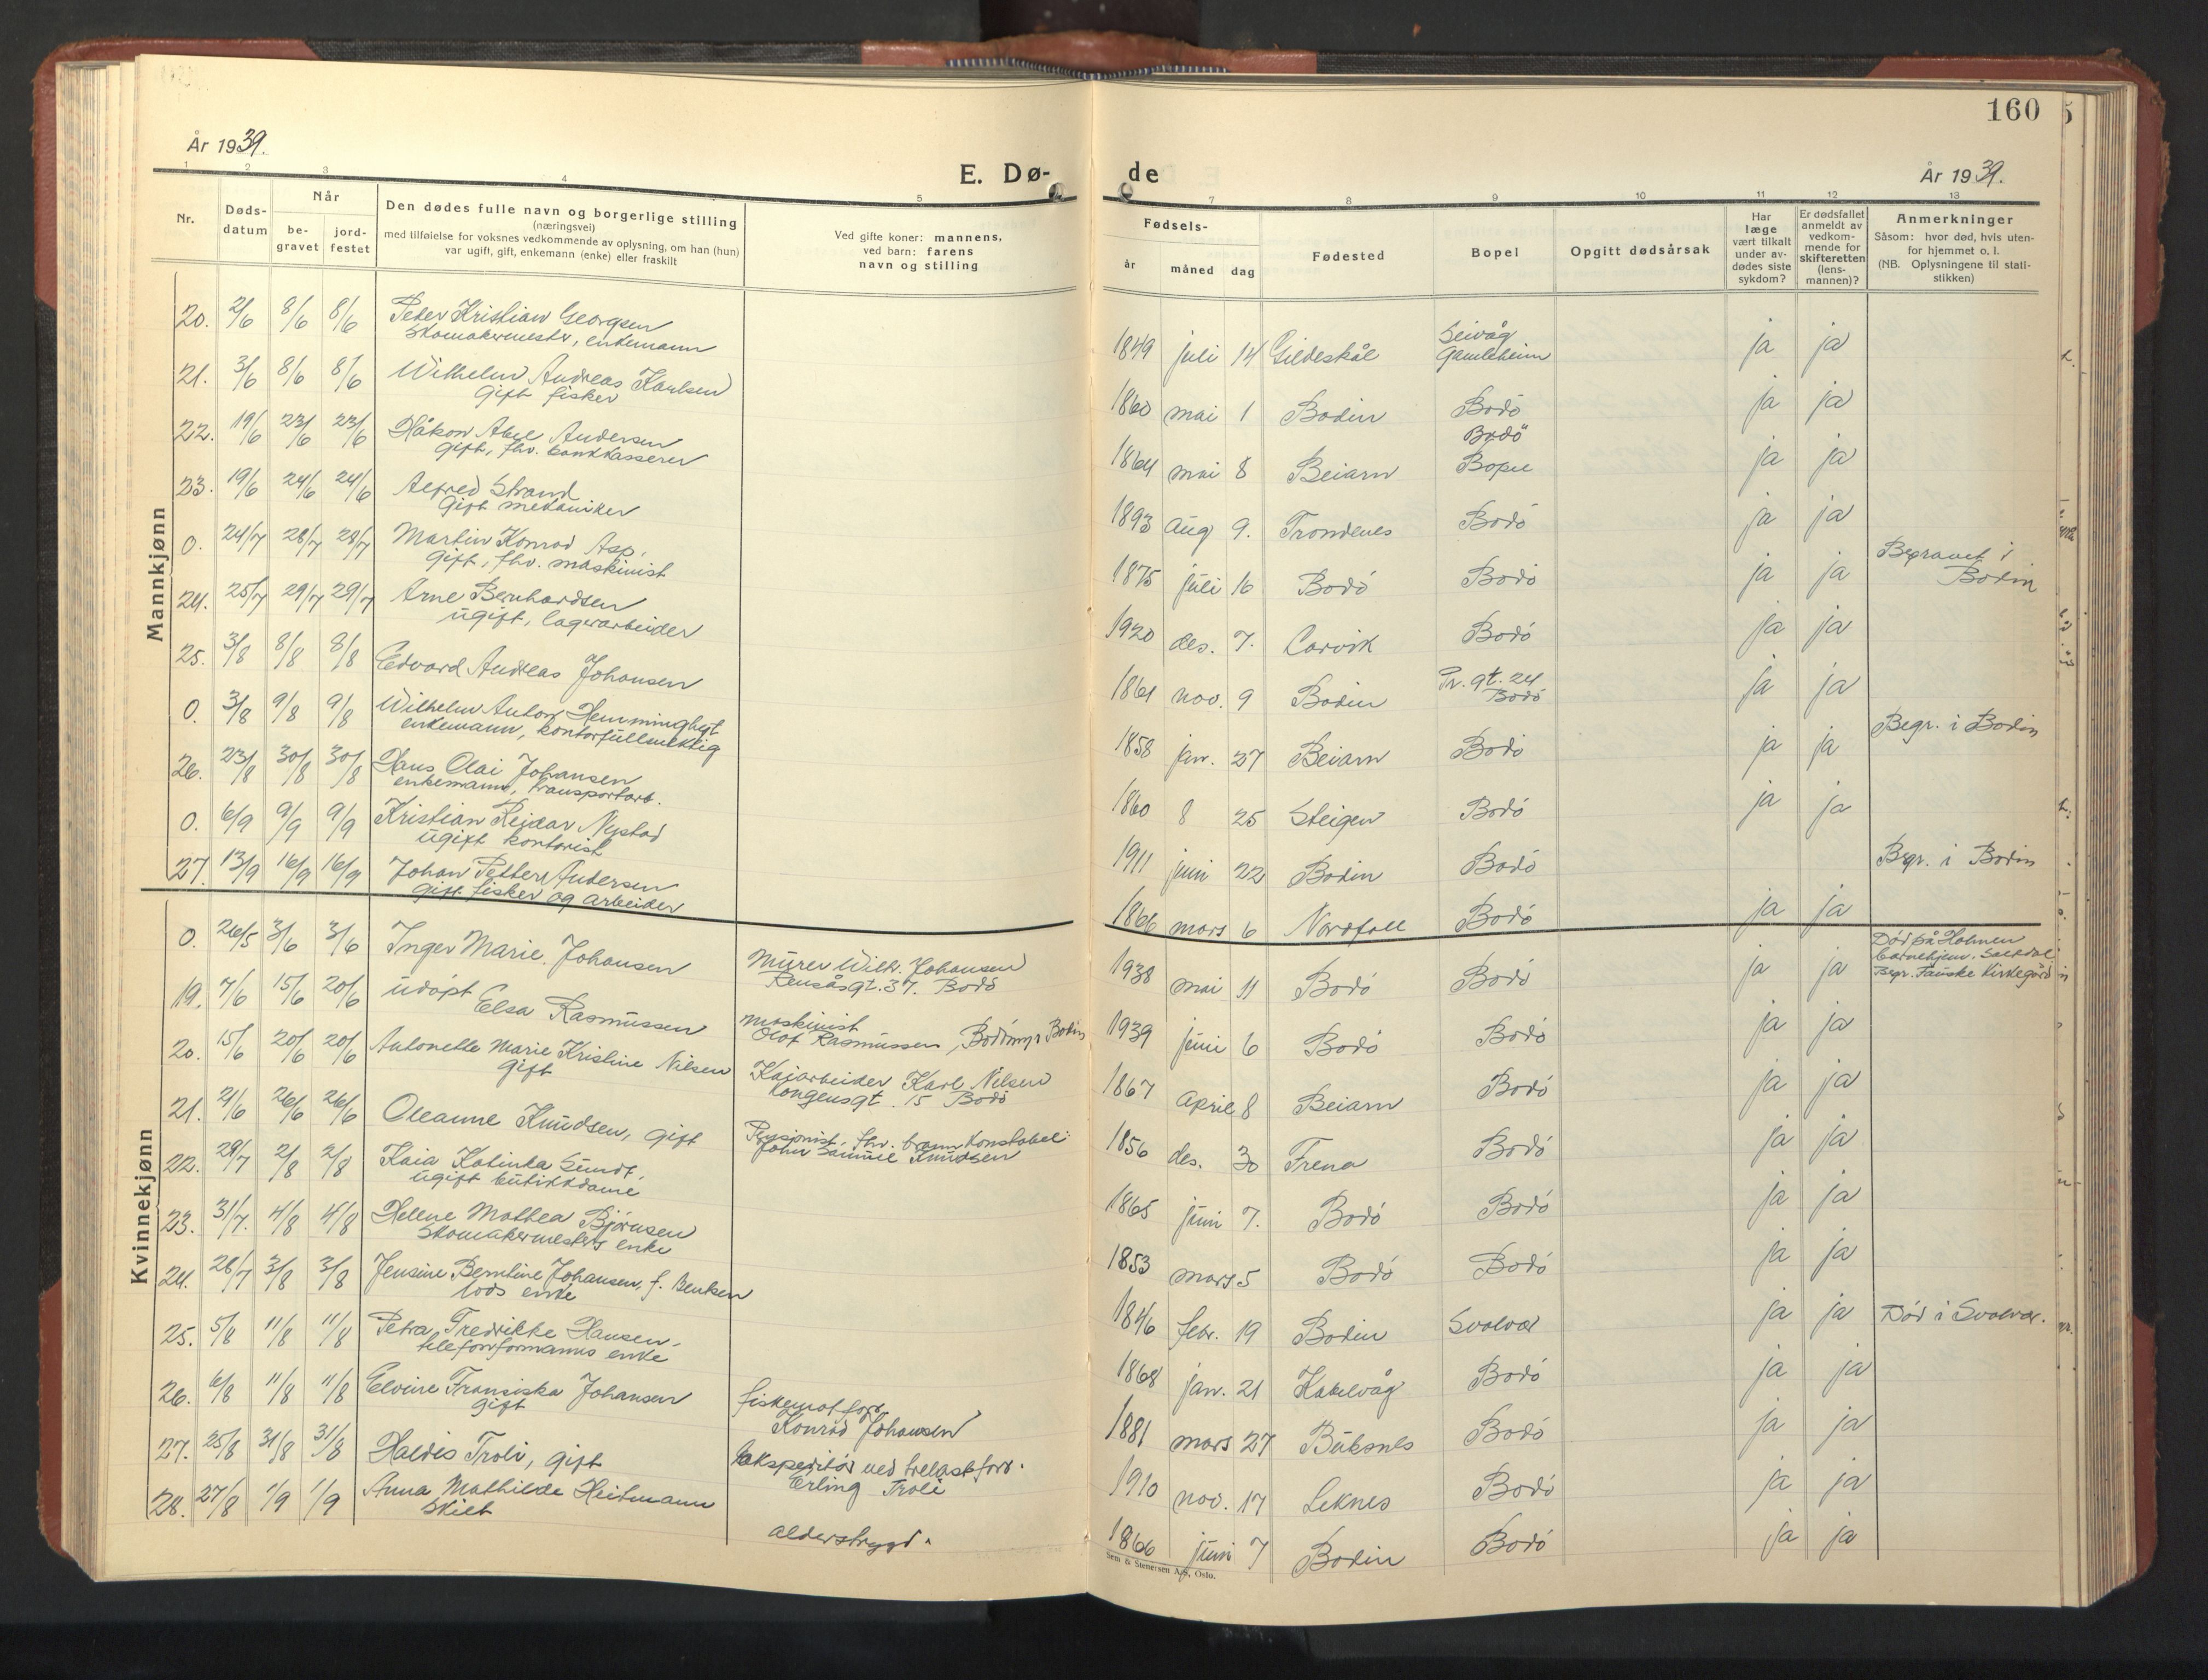 160
År 1939.
E. Dø-
de
År 1939.
1 2 3 4 5 7 8 9 10 11 12 13
Nr.
Døds-
datum
Når
be-
gravet
jord-
festet
Den dødes fulle navn og borgerlige stilling
(næringsvei)
med tilføielse for voksnes vedkommende av oplysning, om han (hun)
var ugift, gift, enkemann (enke) eller fraskilt
Ved gifte koner: mannens,
ved barn: farens
navn og stilling
Fødsels-
år måned dag
Fødested
Bopel
Opgitt dødsårsak
Har
læge
vært tilkalt
under av-
dødes siste
sykdom?
Er dødsfallet
anmeldt av
vedkom-
mende for
skifteretten
(lens-
mannen)?
Anmerkninger
Såsom: hvor død, hvis uten-
for hjemmet o. l.
(NB. Oplysningene til stati-
stikken)
Mannkjønn
20. 2/6 8/6 8/6 Peter Kristian Georgsen
Skomakermester, enkemann
1849 juli 14 Gildeskål Seivåg
Gamleheim ja ja
21. 3/6 8/6 8/6 Wilhelm Andreas Karlsen
Gift fisker
1860 mai 1 Bodin Bodö ja ja
22. 19/6 23/6 23/6 Håkon Abel Andersen
Gift, fhv. bankkasserer
1864 mai 8 Beiarn Bodö
Bopel ja ja
23. 19/6 24/6 24/6 Alfred Strand
Gift mekaniker
1893 aug 9. Trondenes Bodö ja ja
0. 24/7 28/7 28/7 Martin Konrad Asp.
Gift, fhv. maskinist
1875 juli 16 Bodö Bodö ja ja Begravet i
Bodin
24. 25/7 29/7 29/7 Arne Bernhardsen
ugift, lagerarbeider
1920 des. 7. Carvik Bodö ja ja
25. 3/8 8/8 8/8 Edvard Andreas Johansen
1861 nov. 9 Bodin Pr. gt. 24
Bodö ja ja
0. 3/8 9/8 9/8 Wilhelm Anton Hemminghyt
enkemann, kontorfullmektig
1858 jan. 27 Beiarn Bodö ja ja Begr. i Bodin
26. 23/8 30/8 30/8 Hans Olai Johansen
enkemann, transportarb.
1860 8 25 Steigen Bodö ja ja
0. 6/9 9/9 9/9 Kristian Reidar Nystad
ugift kontorist
1911 juni 22 Bodin Bodö Begr. i Bodin
27. 13/9 16/9 16/9 Johan Petter Andersen
Gift fisker og arbeider
1866 mars 6 Nordfold Bodö ja ja
Kvinnekjønn
0. 26/5 3/6 3/6 Inger Marie Johansen
Murer Wilh. Johansen
Rensåsgt. 37. Bodö
1938 mai 11 Bodö Bodö ja ja Död på Holmen
barnehjem, Saltdal
Begr. Fauske Kirkegård
19. 7/6 15/6 20/6 udöpt
Elsa Rasmussen
maskinist
Olaf Rasmussen, Bodömyr Bodin
1939 juni 6 Bodö Bodö ja ja
20. 15/6 20/6 20/6 Antonette Marie Kristine Nilsen
Gift
Kaiarbeider Karl Nilsen
Kongensgt. 15 Bodö
1867 April 8 Beiarn Bodö ja ja
21. 21/6 26/6 26/6 Oleanne Knudsen, gift
Pensjonist, fhv. brannkonstabel
John Samuel Knudsen
1856 des. 30 Frena Bodö ja ja
22. 29/7 2/8 2/8 Kaia Katinka Sundt.
ugift butikkdame
1865 juni 7. Bodö Bodö ja ja
23. 31/7. 4/8 4/8 Helene Mathea Björnsen
Skomakermesters enke
1853 mars 5 Bodö Bodö ja ja
24. 28/7 3/8 3/8 Jensine Berntine Johansen, f. Bentsen
lods enke
1846 febr. 19 Bodin Svolvær ja ja Död i Svolvær.
25. 5/8 11/8 11/8 Petra Fredrikke Hansen.
telefonformanns enke
1868 jan. 21 Kabelvåg Bodö ja ja
26. 6/8 11/8 11/8 Elvine Fransiska Johansen
gift
fiskematforr.
Konrad Johansen
1881 mars 27 Buksnes Bodö ja ja
27. 25/8 31/8 31/8 Haldis Troli, gift
Ekspeditör ved trelastforr.
Erling Troli
1910 nov. 17 Leknes Bodö ja ja
28. 27/8 1/9 1/9 Anna Mathilde Heitmann
Skilt
alderstrygd.
1866 juni 7 Bodin Bodö ja ja
Sem & Stenersen A/S, Oslo.